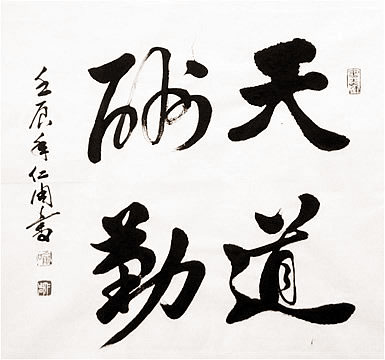 天道
酬勤
壬辰年仁甫书